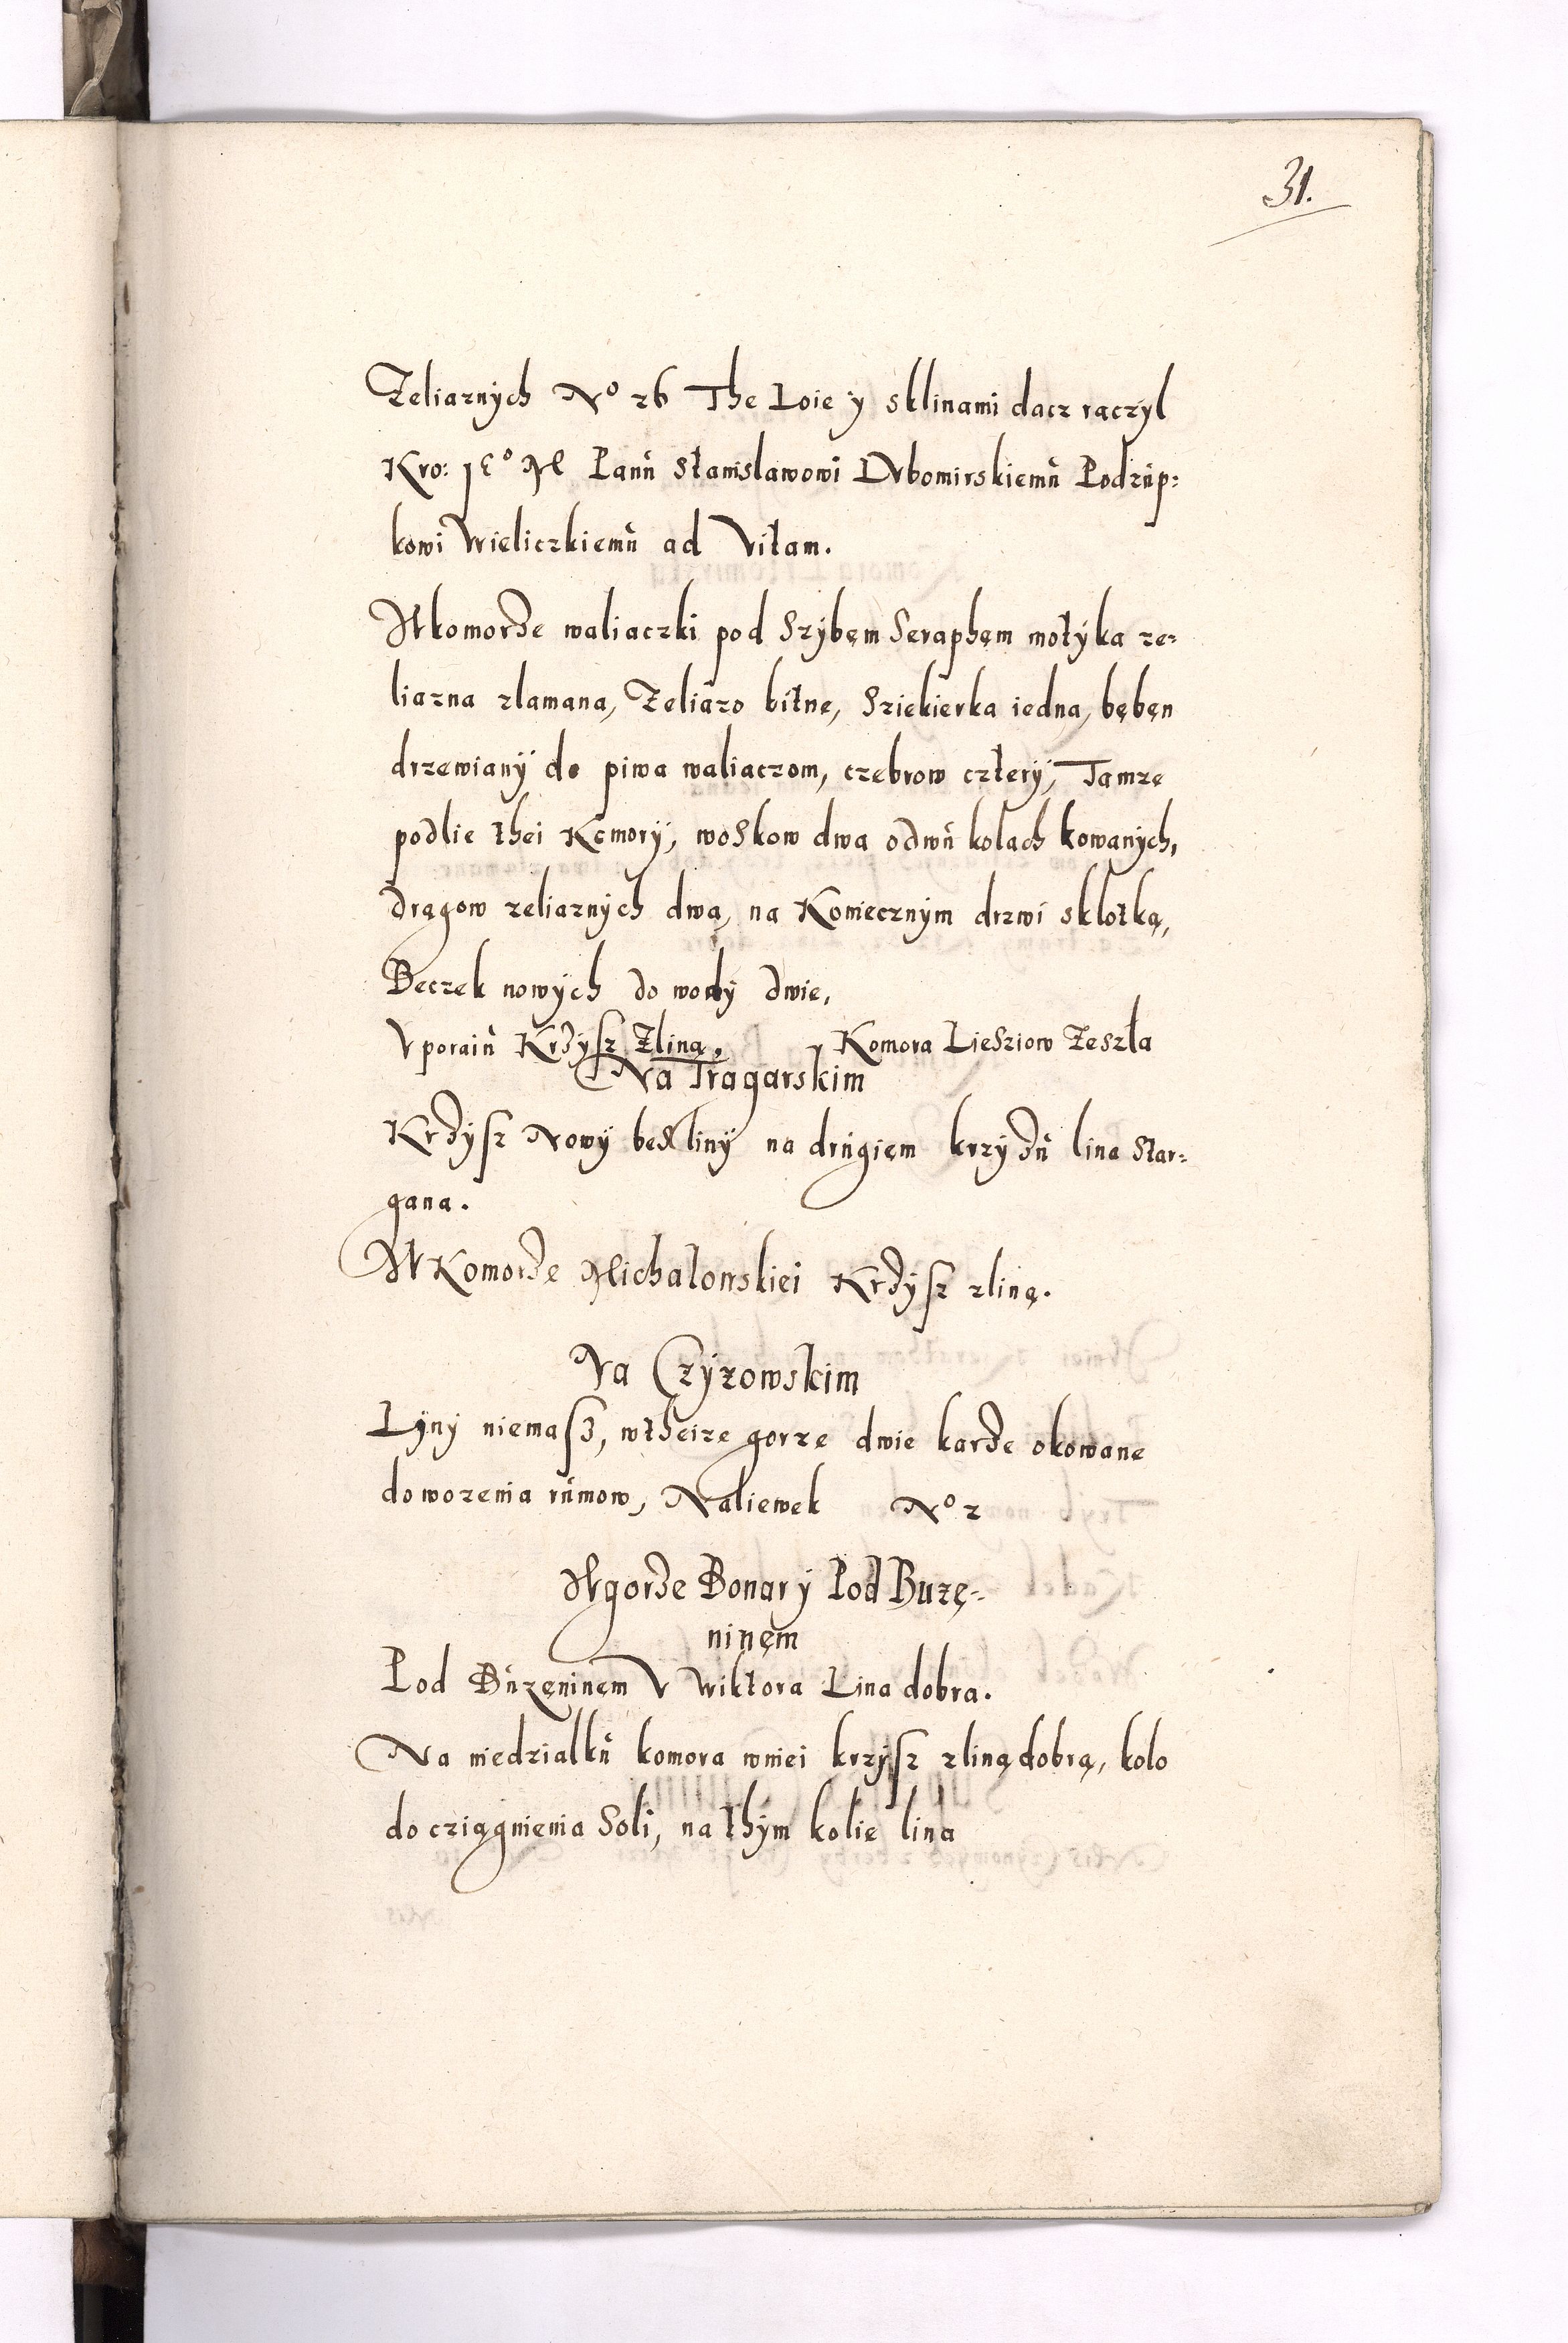 31.
Zeliaznych No 26 The Loie y sklinami dacz raczyl
Kro: JEo M Panu Stanislawowi Lubomirskiemu Podzup:
kowi Wieliczkiemu ad Vitam.
W komorze waliaczki pod Szybem Seraphem motyka ze:
liazna zlamana, Zeliazo bitne, Sziekierka iedna, bęben
drzewiany do piwa waliaczom, czebrow cztery, Tamze
podlie thei Komory, woskow dwa odwu kolach kowanych,
drągow zeliaznych dwa, na Koniecznym drzwi sklotką,
Beczek nowych do wody dwie,
V poraiu Krzysz Zliną. Komora Liesziow Zeszla
Na Tragarskim
Krzysz Nowy bes liny na drugiem krzyzu lina Star:
gana.
W Komorze Michalowskiei Krzysz zliną.
Na Czyzowskim
Lyny niemasz, wtheize gorze dwie karze okowane
do wozenia rumow, Naliewek No 2
W gorze Bonary Pod Buzę:
ninem
Pod Buzeninem V Wiktora Lina dobra.
Na niedzialku komora wniei krzysz zliną dobrą, kolo
do cziągnienia Soli, na thym kolie lina